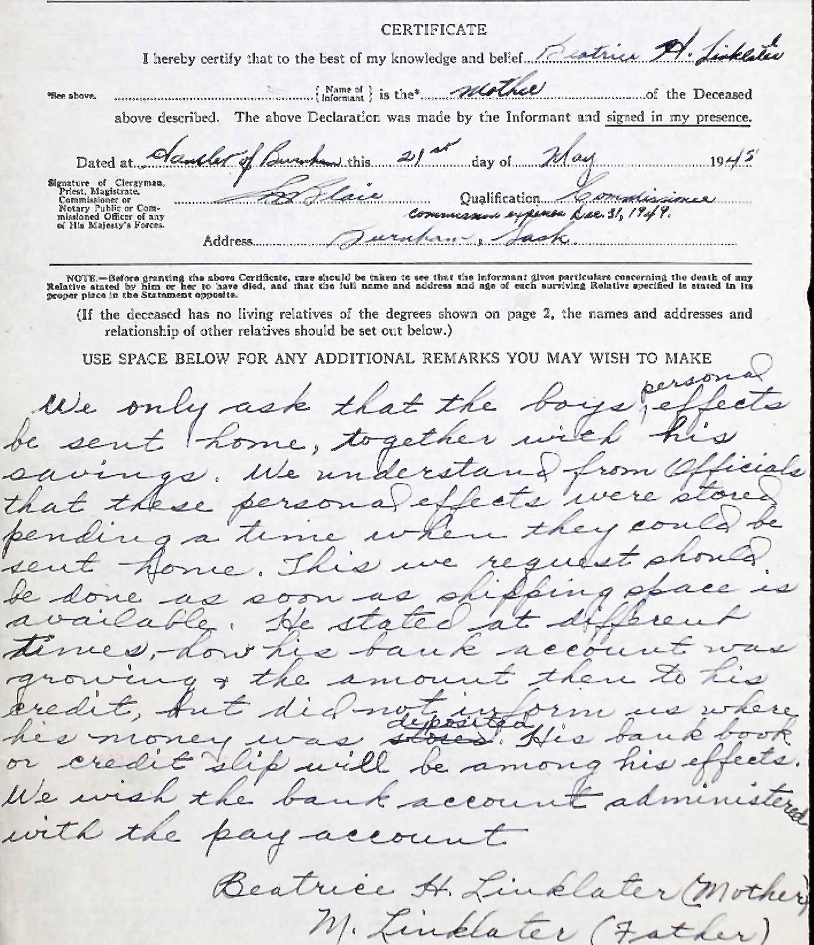 CERTIFICATE
I hereby certify that to the best of my knowledge and belief Beatrice H. Linklater
*See above. { Name of Informant } is the* Mother of the Deceased
above described. The above Declaration was made by the Informant and signed in my presence.
Dated at Hamlet of Burnham this 21st day of May 1945
Signature of Clergyman,
Priest, Magistrate,
Commissioner or
Notary Public or Com-
missioned Officer of any
of His Majesty's Forces.
Blair Qualification Commissioner
commission expires Dec. 31, 1949.
Address Burnham, Sask.
NOTE.—Before granting the above Certificate, care should be taken to see that the Informant gives particulars concerning the death of any
Relative stated by him or her to have died, and that the full name and address and age of each surviving Relative specified is stated in its
proper place in the Statement opposite.
(If the deceased has no living relatives of the degrees shown on page 2, the names and addresses and
relationship of other relatives should be set out below.)
USE SPACE BELOW FOR ANY ADDITIONAL REMARKS YOU MAY WISH TO MAKE
personal
We only ask that the boys effects
be sent home, together with his
savings. We understand from Officials
that these personal effects were stored
pending a time when they could be
sent home. This we request should
be done as soon as shipping space is
available. He stated at different
times, how his bank account was
growing & the amount then to his
credit, but did not inform us where
deposited
his money was stored. His bank book
or credit slip will be among his effects.
We wish the bank account administered
with the pay account
Beatrice H. Linklater (Mother)
M. Linklater (Father)